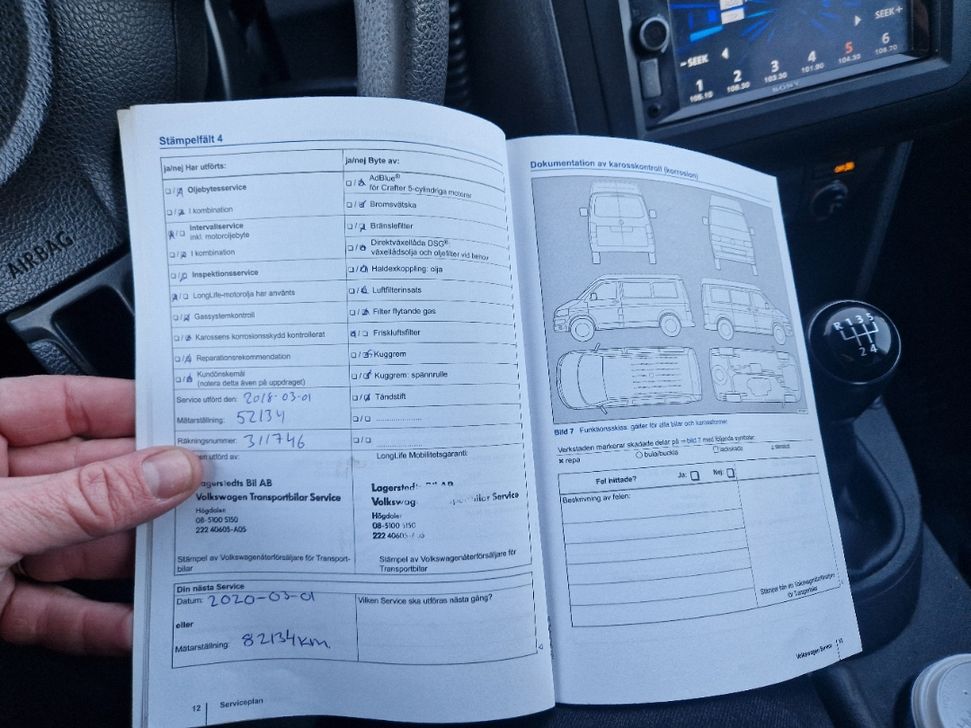 AIRBAG
SEEK+
-SEEK
1 2 3 4 5 6
106.30 103.30 101.90 104.30
SONY
R 1 3 5
2 4
Stämpelfält 4
ja/nej Har utförts:
Oljebytesservice
I kombination
Intervallservice
inkl. motoroljebyte
I kombination
Inspektionsservice
LongLife-motorolja har använts
Gassystemkontroll
Karossens korrosionsskydd kontrollerat
Reparationsrekommendation
Kundönskemål
(notera detta även på uppdraget)
Service utförd den: 2018-03-01
Mätarställning: 52134
Räkningsnummer: 311746
utförd av:
Lagerstedts Bil AB
Volkswagen Transportbilar Service
Högdalen
08-5100 5150
222 40605-A05
Stämpel av Volkswagenåterförsäljare för Transport-
bilar
ja/nej Byte av:
AdBlue®
för Crafter 5-cylindriga motorer
Bromsvätska
Bränslefilter
Direktväxellåda DSG®:
växellådsolja och oljefilter vid behov
Haldexkoppling: olja
Luftfilterinsats
Filter flytande gas
Friskluftsfilter
Kuggrem
Kuggrem: spännrulle
Tändstift
LongLife Mobilitetsgaranti:
Lagerstedts
Volkswag bilar Service
Högdalen
08-5100 5150
222 40605
Stämpel av Volkswagenåterförsäljare för
Transportbilar
Din nästa Service
Datum: 2020-03-01
eller
Mätarställning: 82134km.
Vilken Service ska utföras nästa gång?
12 Serviceplan
Dokumentation av karosskontroll (korrosion)
Bild 7 Funktionsskiss: gäller för alla bilar och karossformer
Verkstaden markerar skadade delar på ⇒ bild 7 med följande symboler:
x repa
bula/buckla
lackskada
Fel hittade? Ja: Nej:
Beskrivning av felen:
för Transportbilar
Volkswagen Service